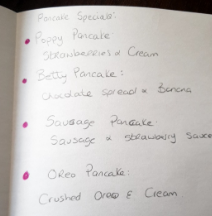 Pancake Specials:
Poppy Pancake:
Strawberries & Cream
Betty Pancake:
Chocolate spread & Banana
Sausage Pancake:
Sausage & Strawberry Sauce
Oreo Pancake:
Crushed Oreo & Cream